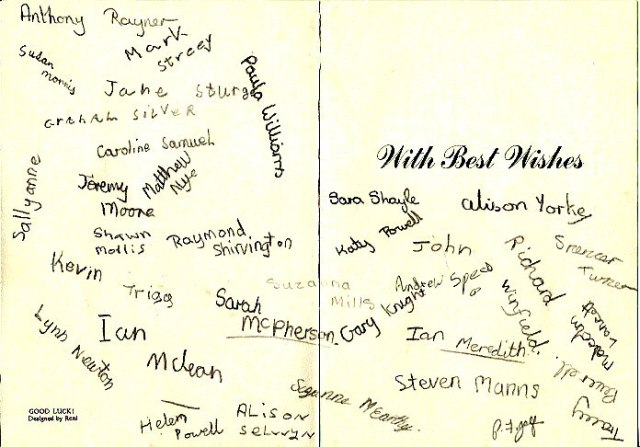 Anthony Rayner
Mark
Street
Susan
Morris
Jane Sturge
Paula Williams
GRAHAM SILVER
Caroline Samuel
Sallyanne
Jeremy
Moore
Matthew
Nye
Shawn
Mollis
Raymond
Shirvington
Kevin
Triggs
Sarah
McPherson
Suzanna
Mills
Lynn Newton
Ian
Mclean
GOOD LUCK!
Designed by Real
Helen
Powell
ALISON
SELWYN
With Best Wishes
Sara Shayle
alison Yorke
Katy Powell
John
Andrew Speed
Richard
Winfield.
Spencer
Turner
Gary Knight
Ian Meredith
Malcolm
Steven Manns
Suzanne
Tracey